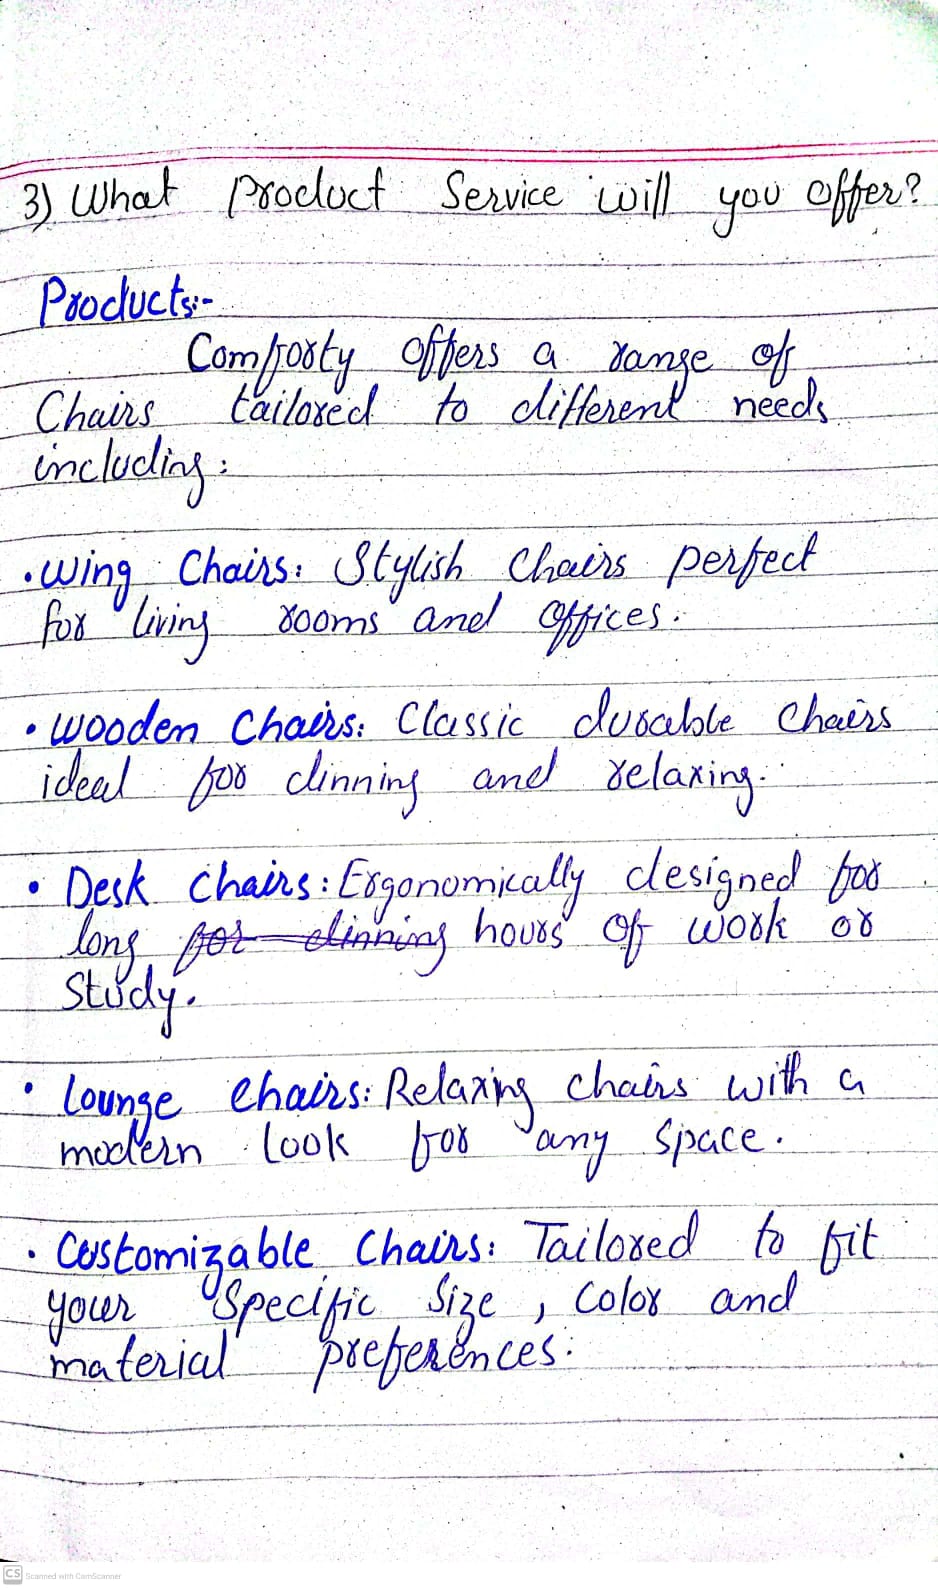 3) What Product Service will you offer?
Products:-
Comforty offers a range of
Chairs tailored to different needs
including:
• Wing Chairs: Stylish Chairs perfect
for living rooms and offices.
• Wooden Chairs: Classic durable Chairs
ideal for dinning and relaxing.
• Desk Chairs: Ergonomically designed for
long for dinning hours of work or
Study.
• Lounge Chairs: Relaxing chairs with a
modern look for any space.
• Customizable Chairs: Tailored to fit
your Specific Size, Color and
material preferences.
CS Scanned with CamScanner